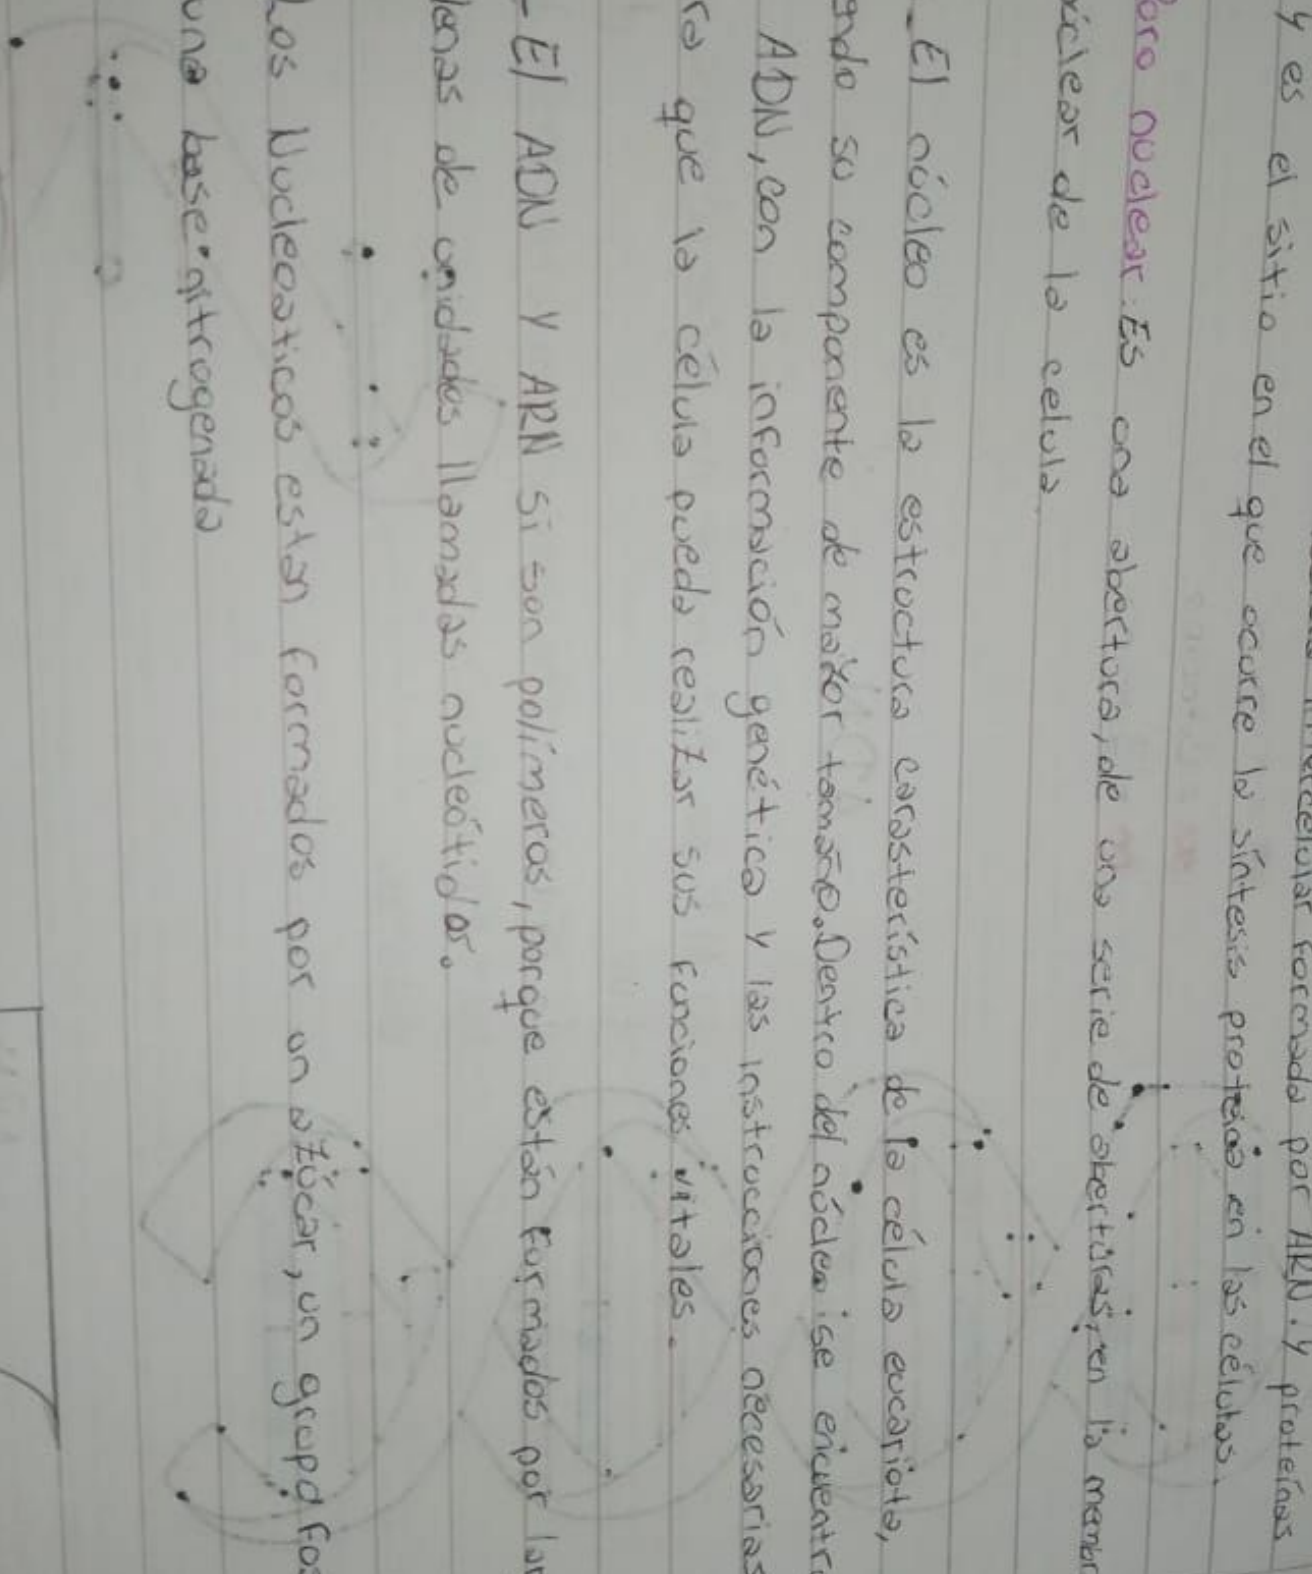 celular formada por ARN. y proteínas
y es el sitio en el que ocurre la síntesis proteica en las células.
Poro nuclear: Es una abertura, de una serie de aberturas, en la membr
clear de la celula.
- El núcleo es la estructura carasterística de la célula eucariota,
endo su componente de maYor tamaño. Dentro del núcleo se encuentr
ADN, con la información genética y las instrucciones necesarias
ra que la célula pueda realizar sus funciones vitales.
- El ADN Y ARN si son polímeros, porque están formados por lar
denas de unidades llamadas nucleótidos.
Los Nucleoaticos estan formados por un azúcar, un grupo fos
una base nitrogenada